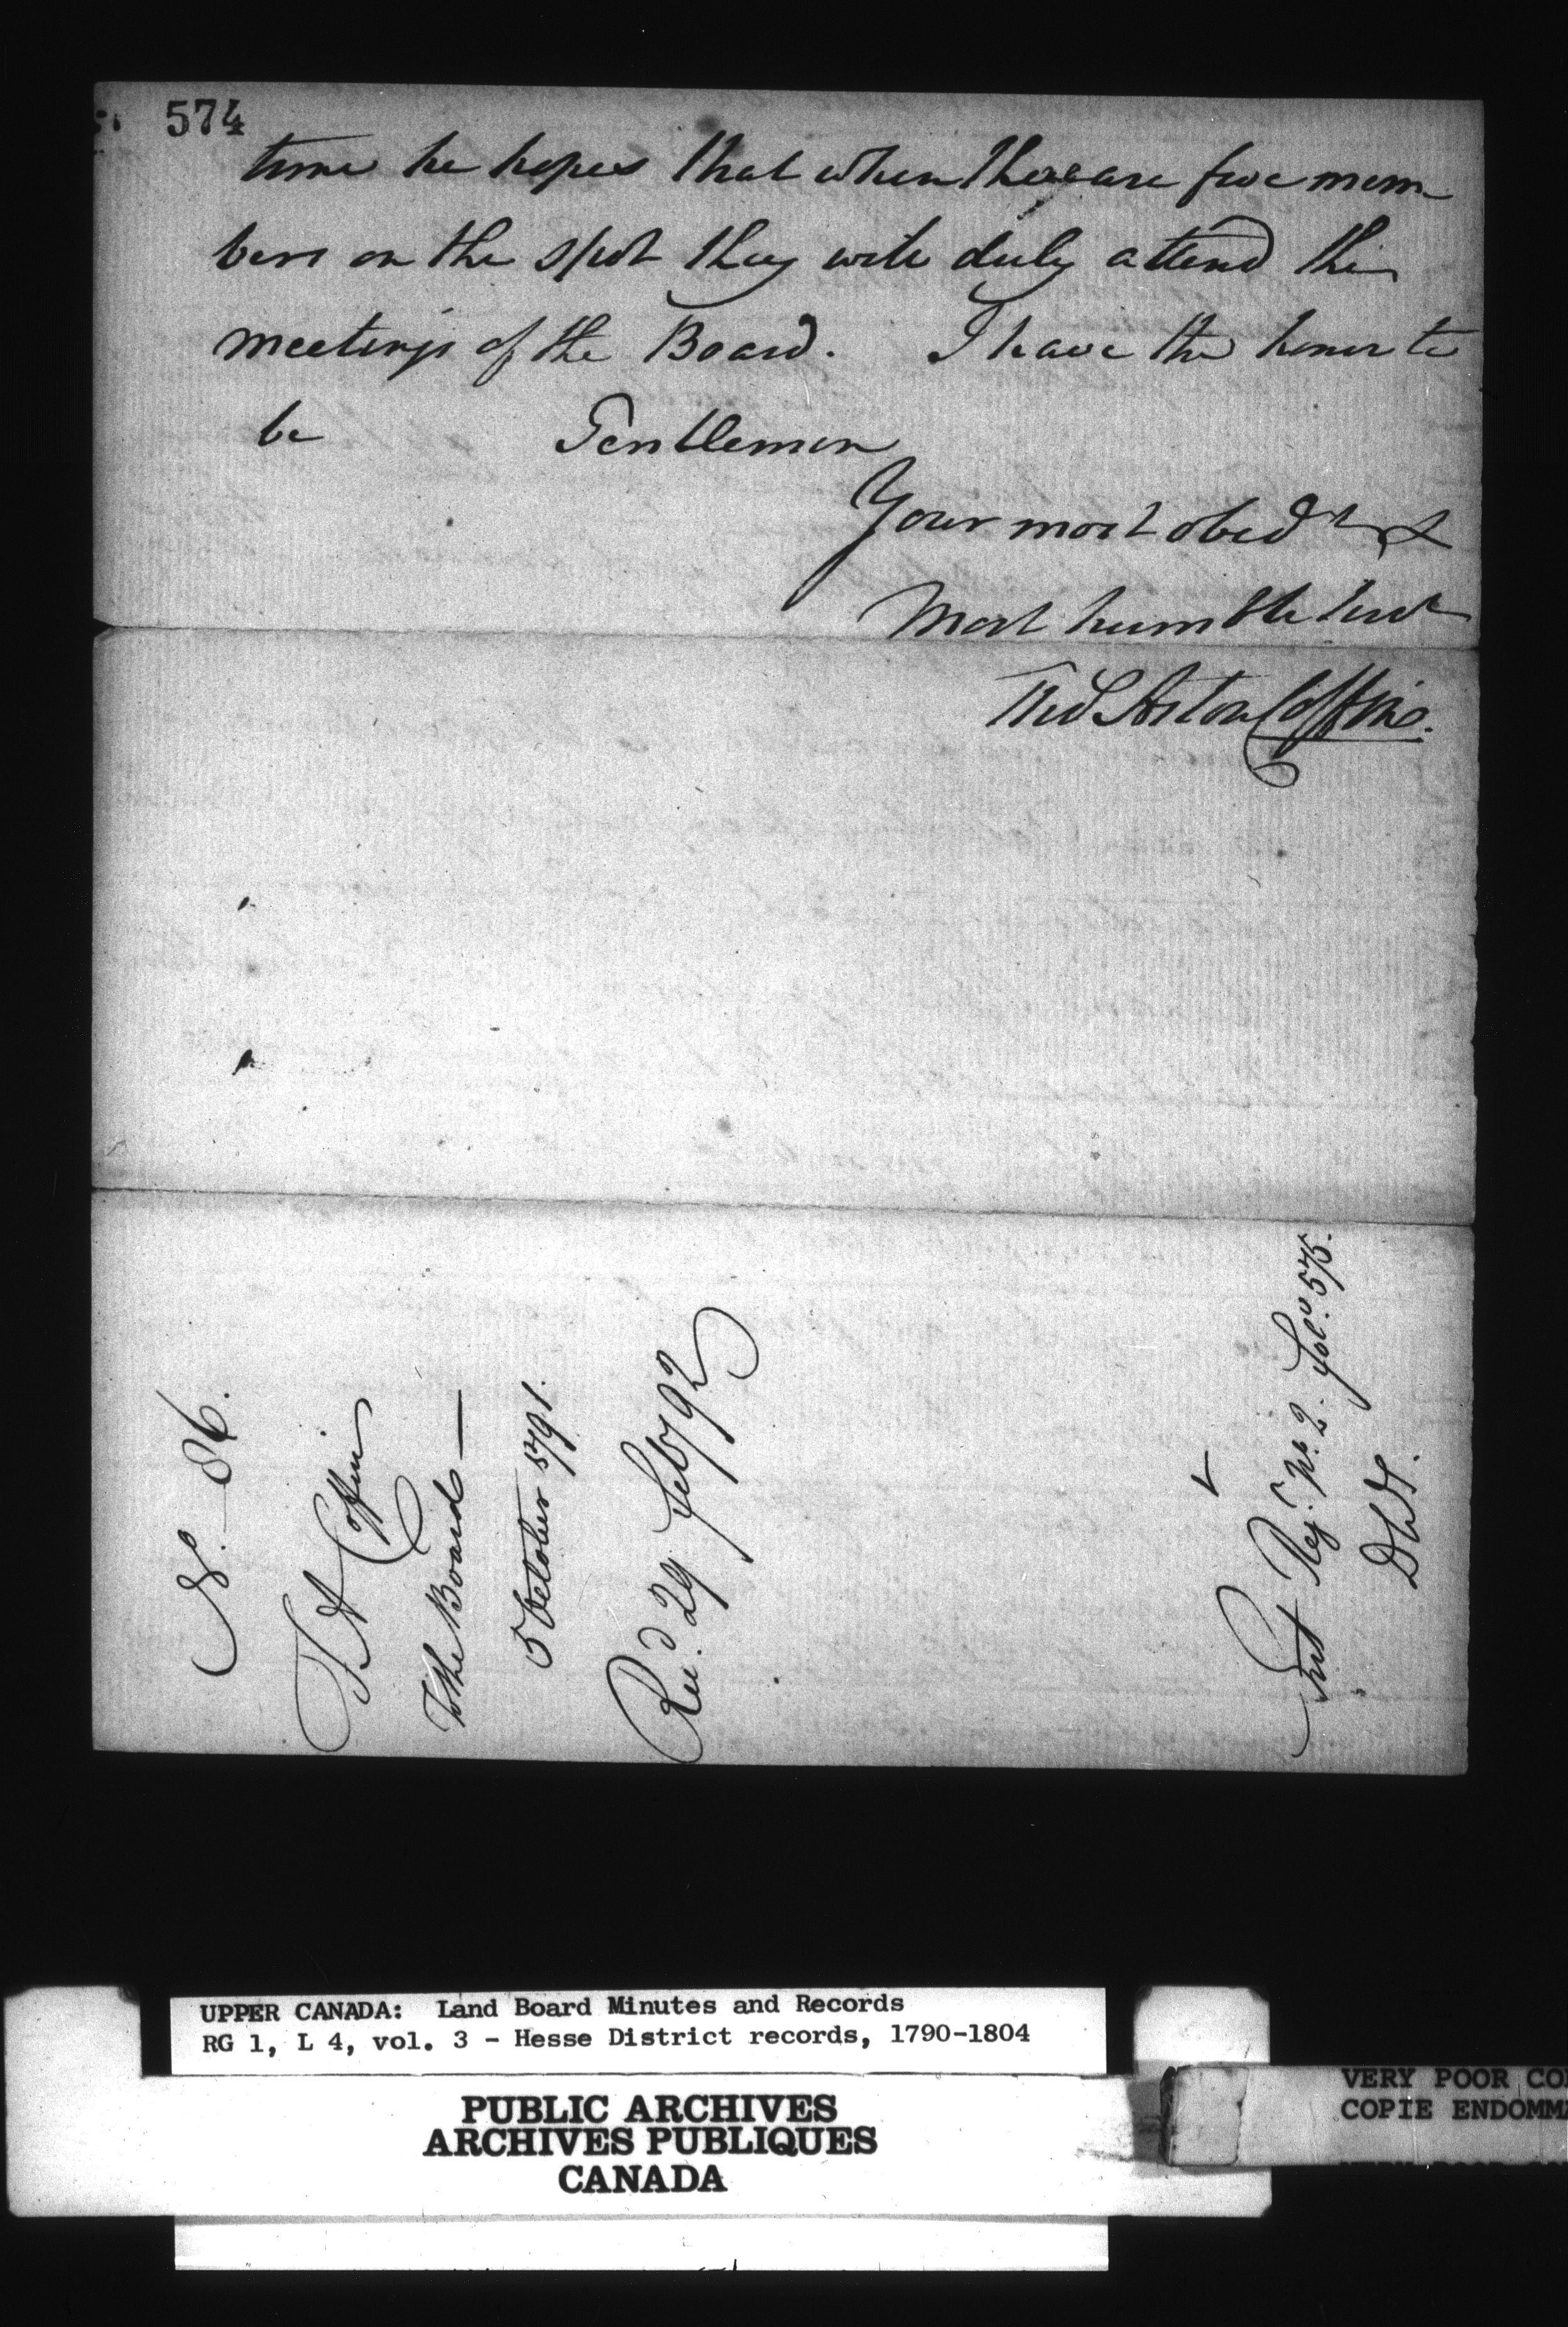 574
time he hopes that when there are five mem-
bers on the spot they will duly attend the
meetings of the Board. I have the honor to
be Gentlemen
Your most obedt &
Most humble Servt
Thos Aston Coffin.
No. 86.
T A Coffin
To the Board —
5 October 1791.
Recd. 29 Feb 1792
Ent Reg. No. 2. folo. 575.
DWS.
UPPER CANADA: Land Board Minutes and Records
RG 1, L 4, vol. 3 - Hesse District records, 1790-1804
PUBLIC ARCHIVES
ARCHIVES PUBLIQUES
CANADA
VERY POOR CO
COPIE ENDOMMA